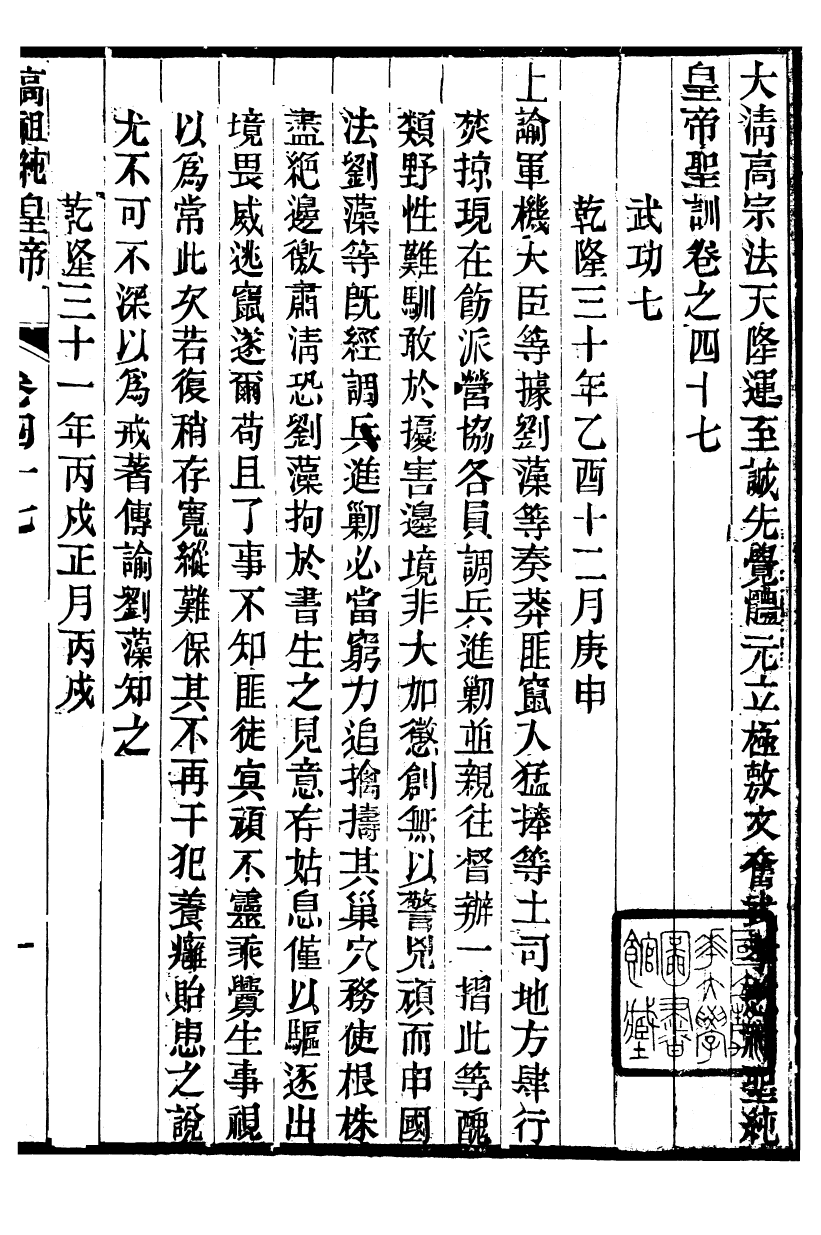 大淸高宗法天隆運至誠先覺體元立極敷文奮武孝慈神聖純
皇帝聖訓卷之四十七
武功七
乾隆三十年乙酉十二月庚申
上諭軍機大臣等據劉藻等奏莽匪竄入猛捧等土司地方肆行
焚掠現在飭派營協各員調兵進勦並親往督辦一摺此等醜
類野性難馴敢於擾害邊境非大加懲創無以警兇頑而申國
法劉藻等旣經調兵進勦必當窮力追擒擣其巢穴務使根株
盡絕邊徼肅淸恐劉藻拘於書生之見意存姑息僅以驅逐出
境畏威逃竄遂爾苟且了事不知匪徒冥頑不靈乘釁生事視
以爲常此次若復稍存寬縱難保其不再干犯養癰貽患之說
尤不可不深以爲戒著傳諭劉藻知之
乾隆三十一年丙戍正月丙戍
高祖純皇帝
卷四十七
一
國立
華大學
圖書
館藏